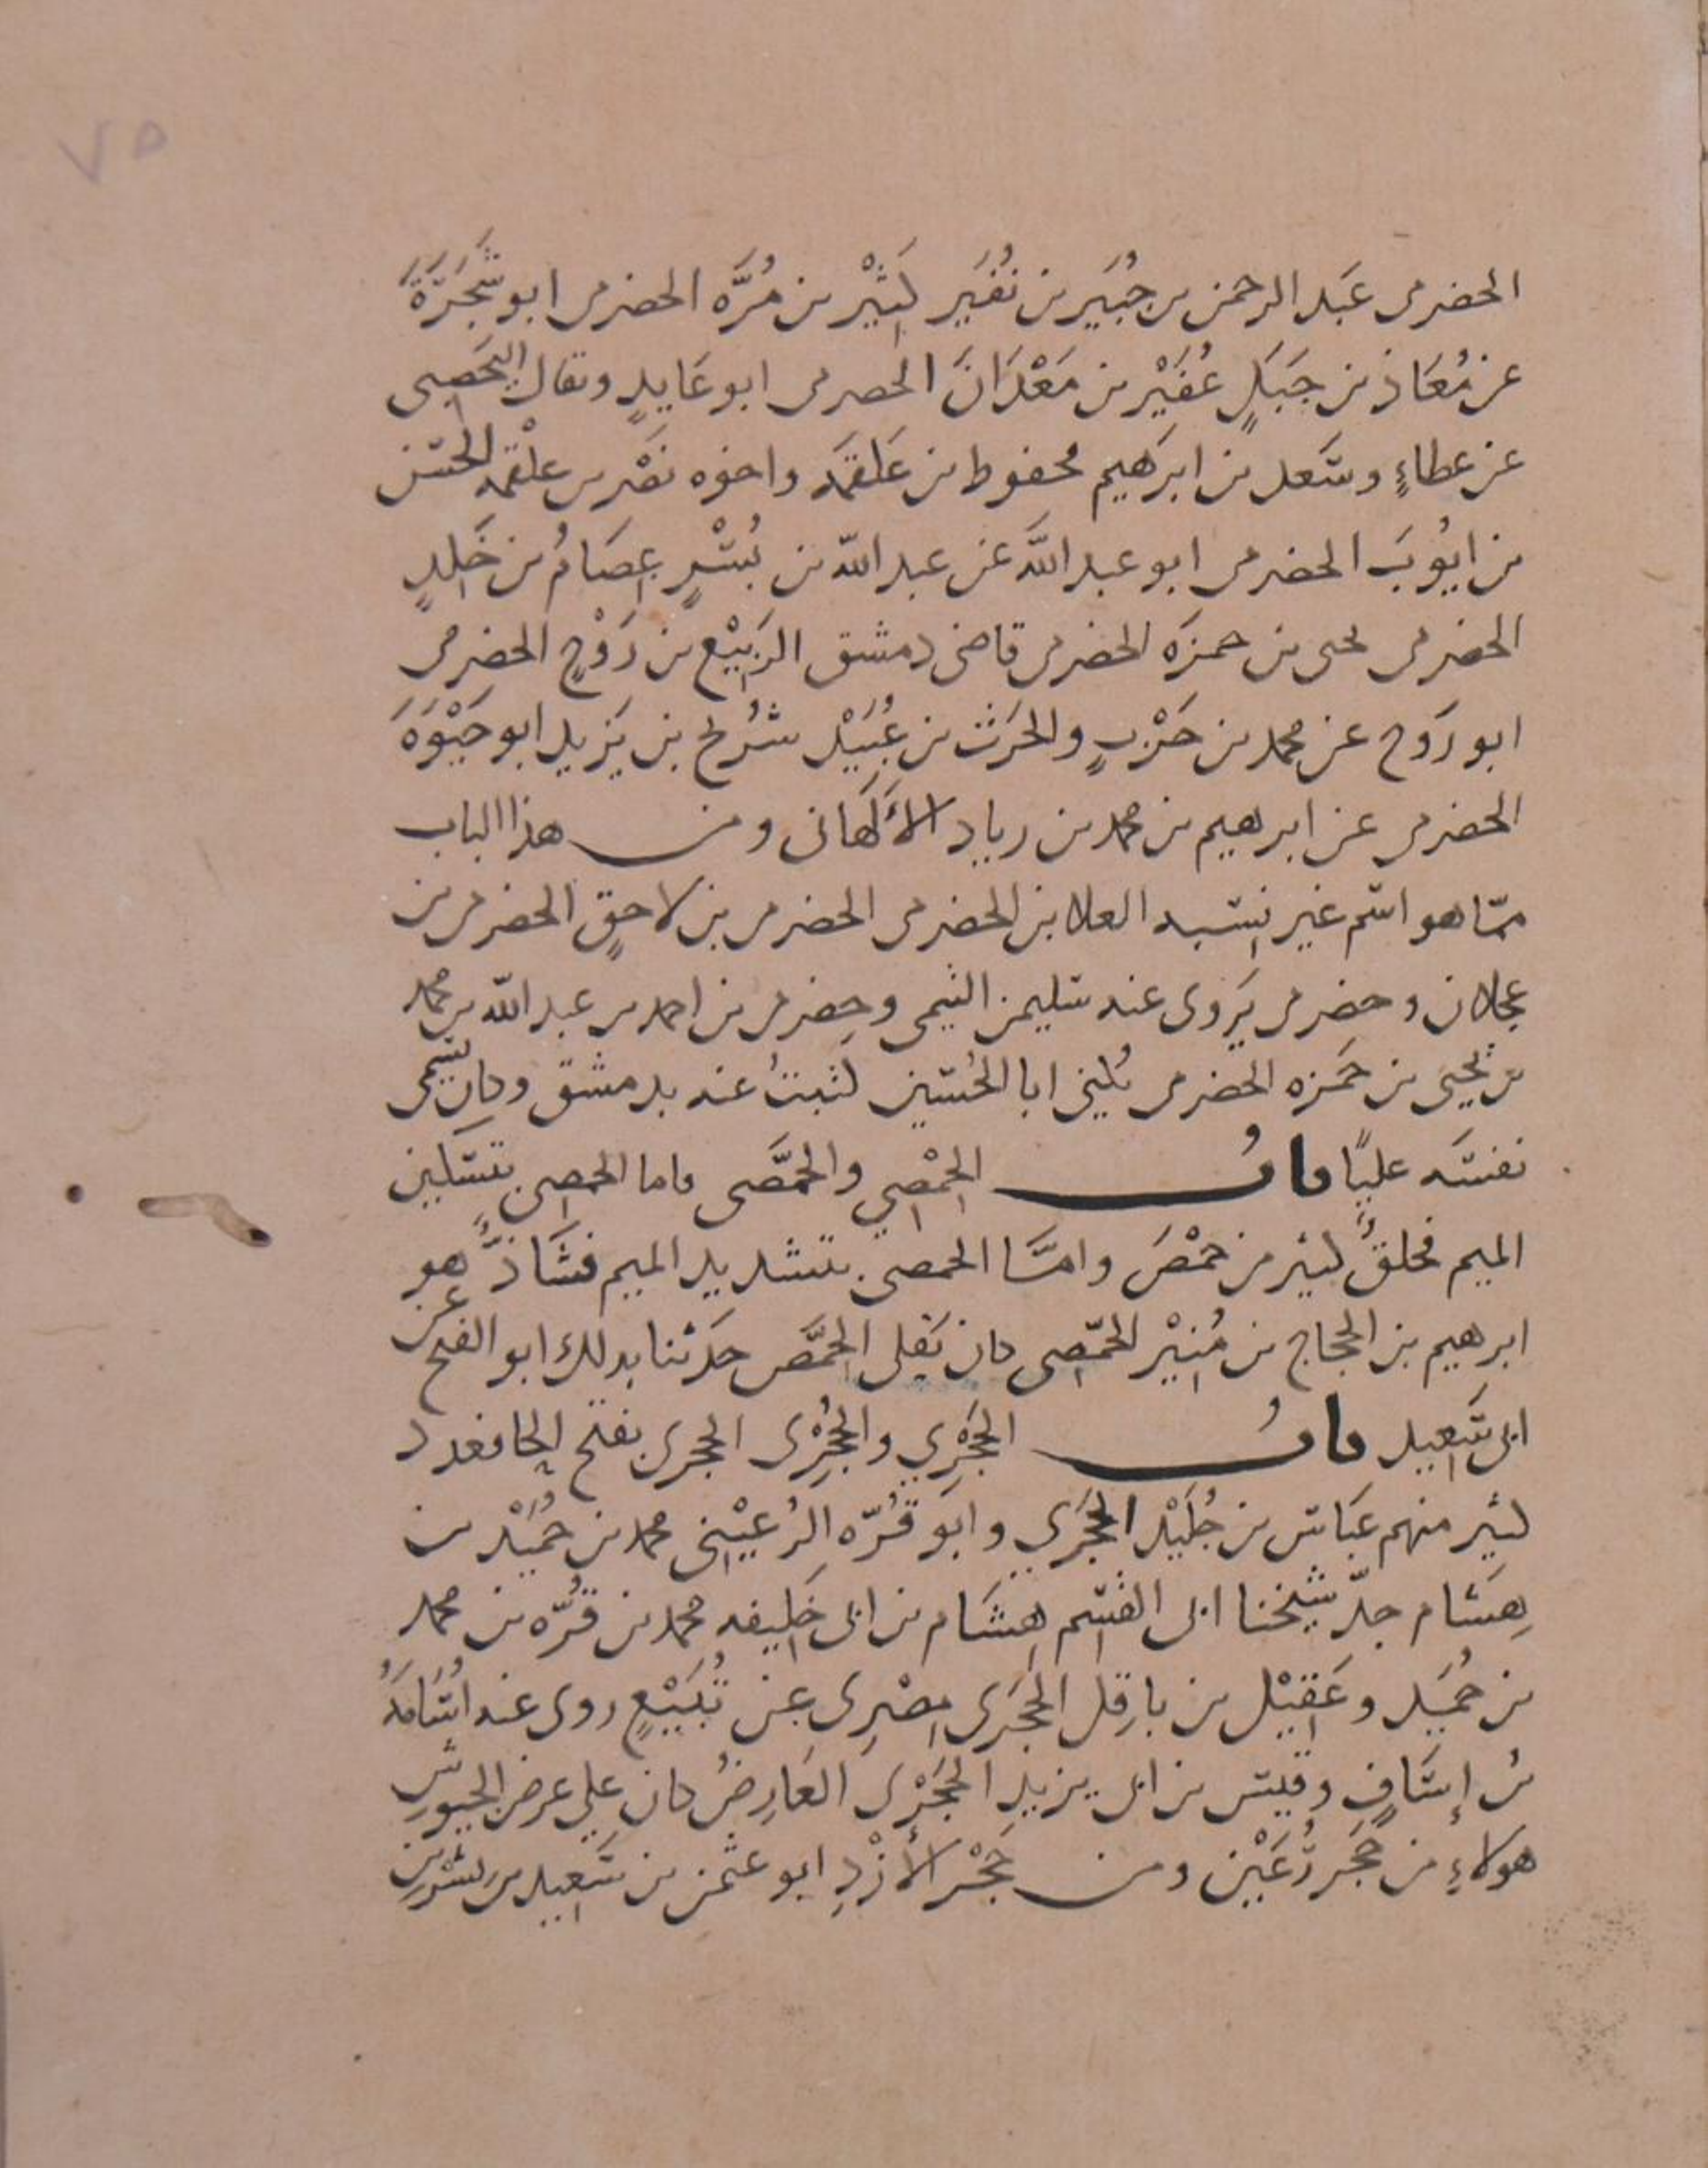 ٧٥
الحضرمى عَبد الرحمن بن جُبَير بن نُفَير كَثِيْر بن مُرَّه الحضرمى ابو شَجَرَةَ
عن مُعَاذ بن جَبَلٍ عُفَيْر بن مَعْدَانَ الحضرمى ابو عَايدٍ ويقال اليَحصِبى
عن عطاءٍ وسَعد بن ابرَهيم محفوظ بن عَلقَمَه واخوه نَصْر بن علْقمه الحسَن
بن ايوُبَ الحضرمى ابو عبد اللَّه عن عبد اللّه بن بُسْرٍ عِصَامُ بن خَلِدٍ
الحضرمى يحيى بن حمزَه الحضرمى قاضى دمشق الرَبِيْع بن رَوْحٍ الحضرمى
ابو رَوح عن محمد بن حَرْبٍ والحَرث بن عُبَيْد شُرَيح بن يَزيد ابو حَيْوَهَ
الحضرمى عن ابرهيم بن محمد بن زياد الأَلهَانى ومن هذا الباب
ممّا هو اسم غير نِسْبه العلا بن الحضرمى الحضرمى بن لاحِقٍ الحضرمى بن
عجلان وحضرمى يَروى عنه سليمن التيمى وحضرمى بن احمد بن عبد اللّه بن محمد
بن يَحيَى بن حَمزه الحضرمى يُكنى ابا الحُسَين كَتبتُ عنه بدمشق وكان يُسمى
نفسَه عليًا بابُ الحِمْصِي والحِمَّصى فاما الحمصى بتَسْكين
الميم فخلقٌ كثير من حِمْصَ وامَّا الحمصى بتشديد الميم فشَاذٌّ هو
ابرهيم بن الحجاج بن مُنِيْر الحمّصِى كان يَقلى الحِمَّص حَدثنا بذلك ابو الفتح عن
ابى سَعِيد بابُ الحَجْرِي والحُجْرِى الحجرى بفتح الحا فعدد
كثير منهم عَباس بن جُلَيْد الحَجَرِي وابَو قُرّه الرُعيْنِى محمد بن حُمَيْد بن
هِشَام جدّ شيْخنا ابى القسِم هِشَام بن ابى خَلِيفه محمد بن قُرّه بن محمد
بن حُمَيد وعَقِيْل بن باقِل الحَجَرى مِصْرِى عن تُبَيْعٍ روى عنه اُسَامَهُ
بنُ إسَافٍ وقَيس بن ابى يزيدِ الحَجْرِى العَارِضُ كان على عرض الجيوشِ
هولاءِ من حَجَر رُعَيْن ومن حَجْر الأَزْدِ ابو عثمن بن سَعِيد بن بشر بن